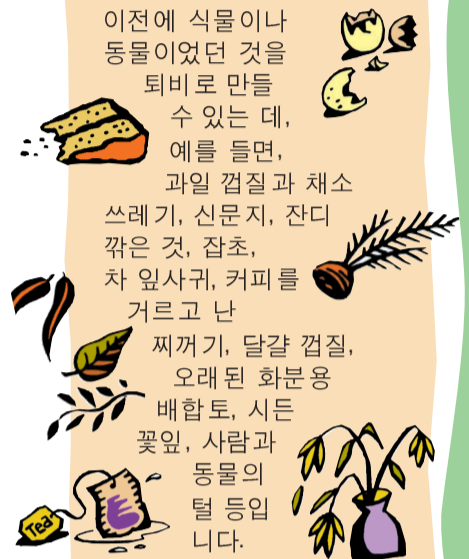 이전에 식물이나
동물이었던 것을
퇴비로 만들
수 있는 데,
예를 들면,
과일 껍질과 채소
쓰레기, 신문지, 잔디
깎은 것, 잡초,
차 잎사귀, 커피를
거르고 난
찌꺼기, 달걀 껍질,
오래된 화분용
배합토, 시든
꽃잎, 사람과
동물의
털 등입
니다.
Tea